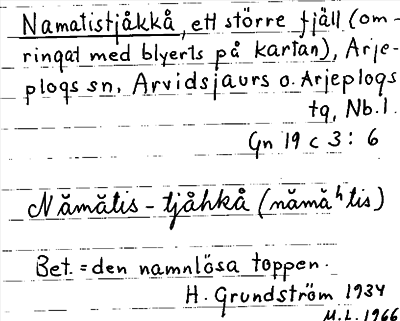 Namatistjåkkå, ett större fjäll (om-
ringat med blyerts på kartan), Arje-
plogs sn. Arvidsjaurs o. Arjeplogs
tg, Nb.l.
Gn 19 c 3 : 6
Nămătis - tjåhkå (nămăʰtis)
Bet. = den namnlösa toppen.
H. Grundström 1934
M.L. 1966